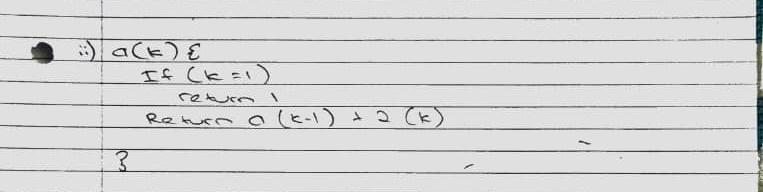 ii) a(k) {
If (k = 1)
return 1
Return a (k-1) + 2 (k)
}